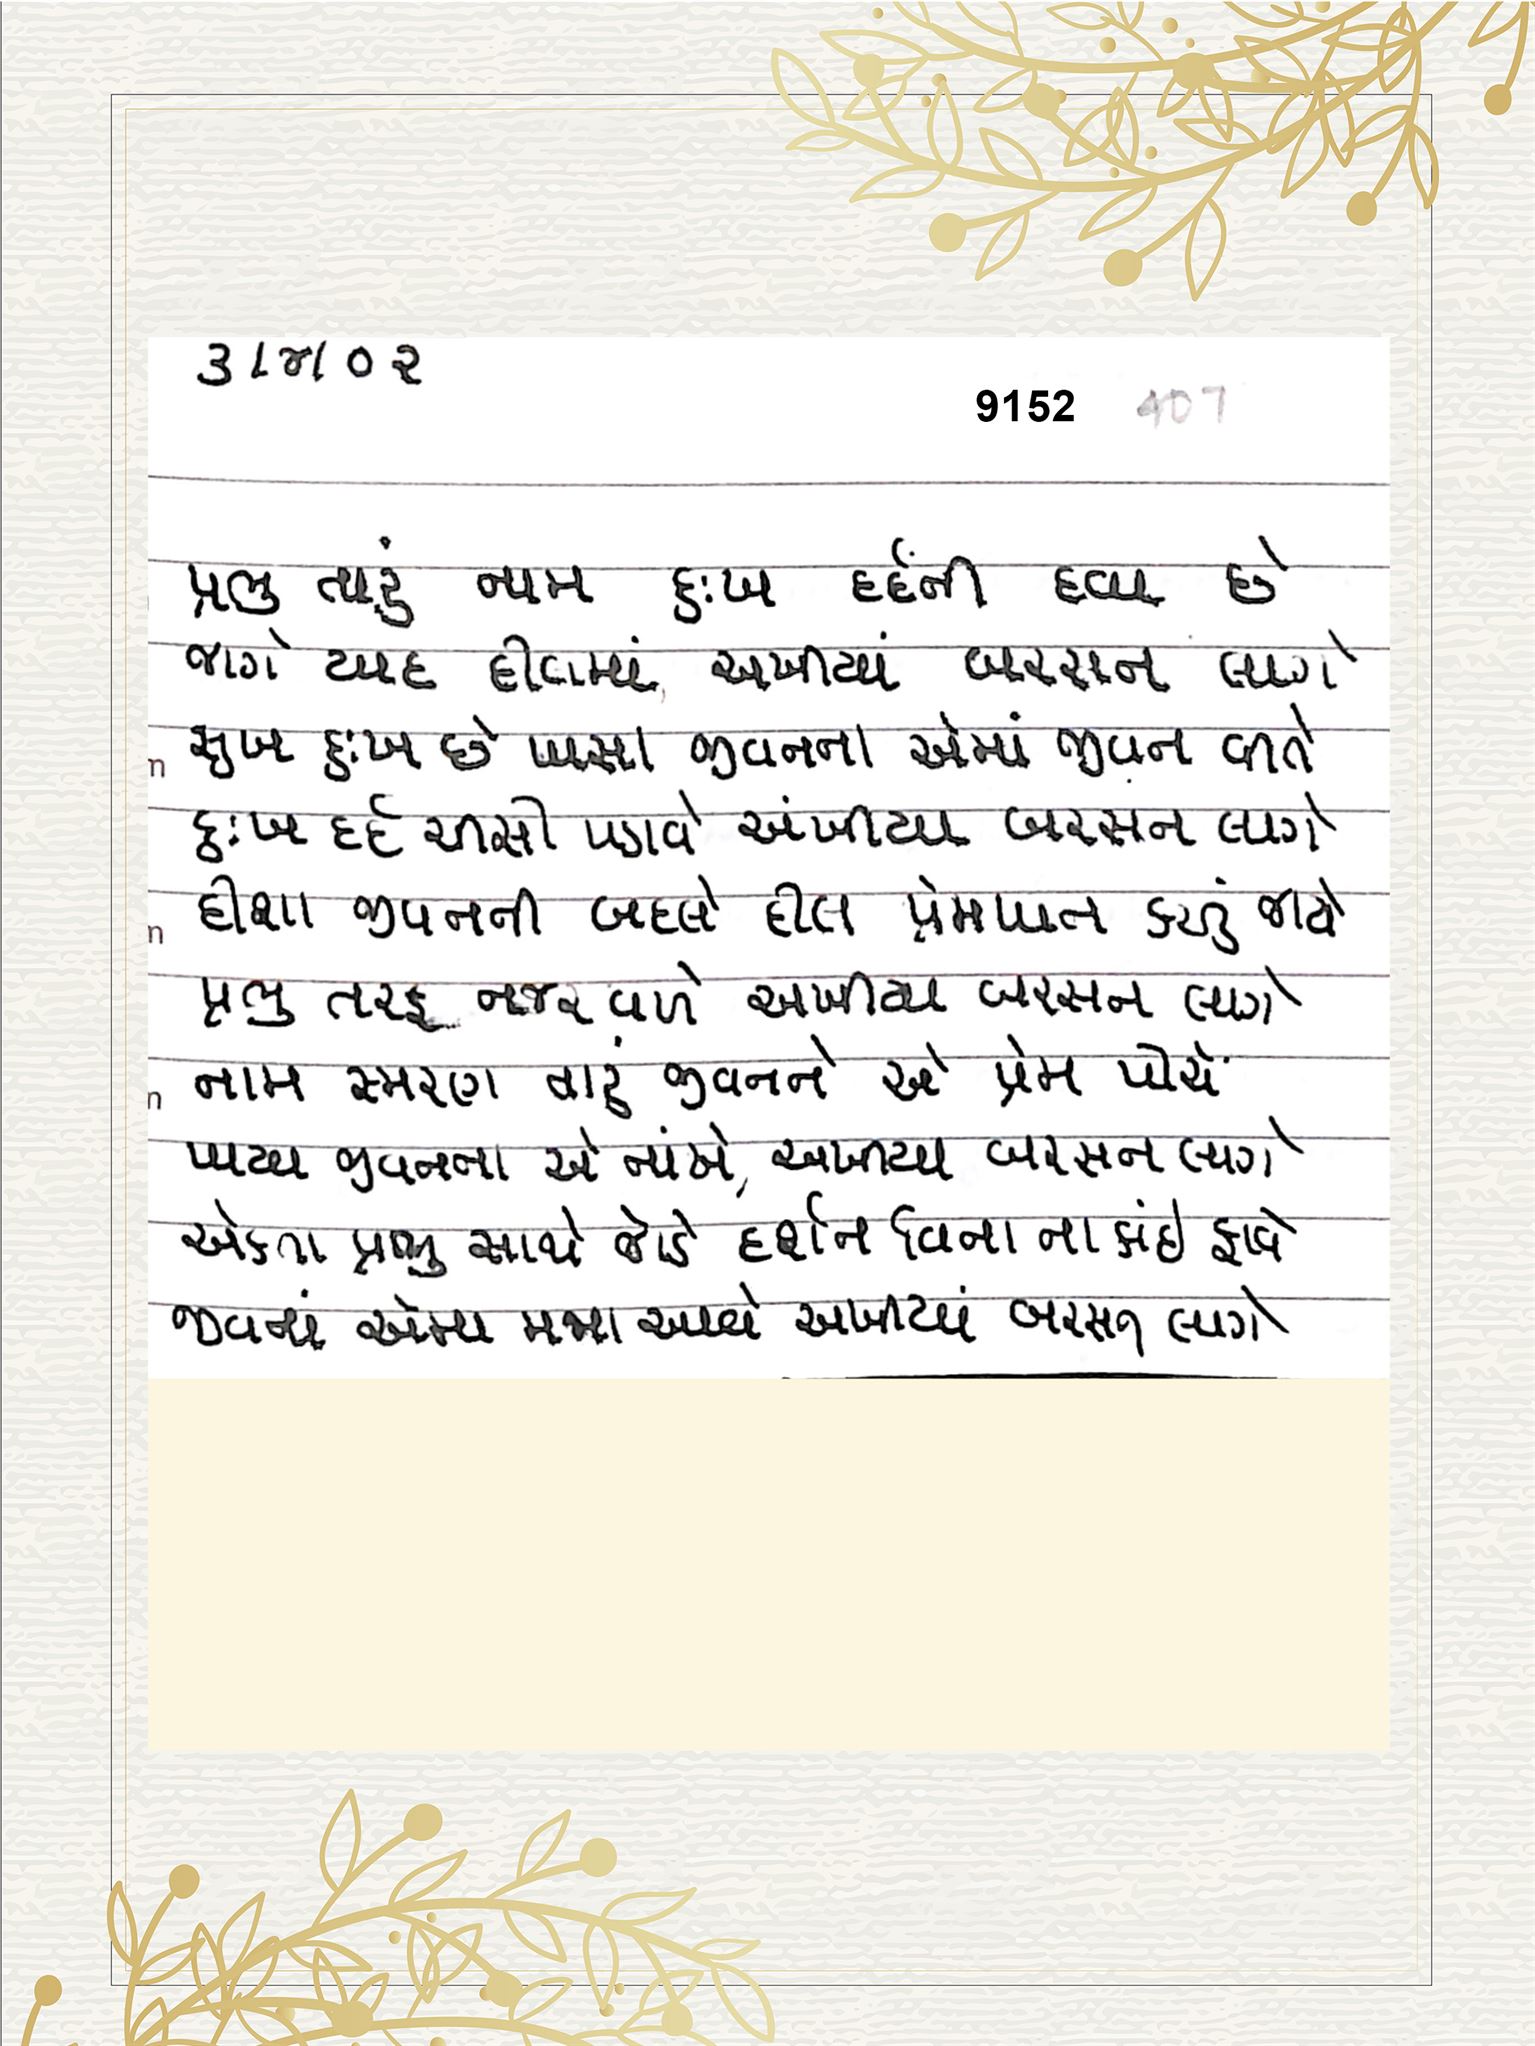 ૩।૪।૦૨
9152 407
પ્રભુ તારું નામ દુઃખ દર્દની દવા છે
જાગે યાદ દીલમાં, અખીયાં બરસન લાગે
સુખ દુઃખ છે પાસા જીવનના એમાં જીવન વીતે
દુઃખ દર્દ ચીસો પડાવે અંખીયા બરસન લાગે
દીશા જીવનની બદલે દીલ પ્રેમપાન કરતું જાયે
પ્રભુ તરફ નજર વળે અખીયા બરસન લાગે
નામ સ્મરણ તારું જીવનને એ પ્રેમ પાયે
પાયા જીવનના એ નાંખે, અખીયા બરસન લાગે
એકતા પ્રભુ સાથે જોડે દર્શન વિના ના કાંઈ ફાવે
જીવનાં એમા મજા આવે અખીયાં બરસન લાગે